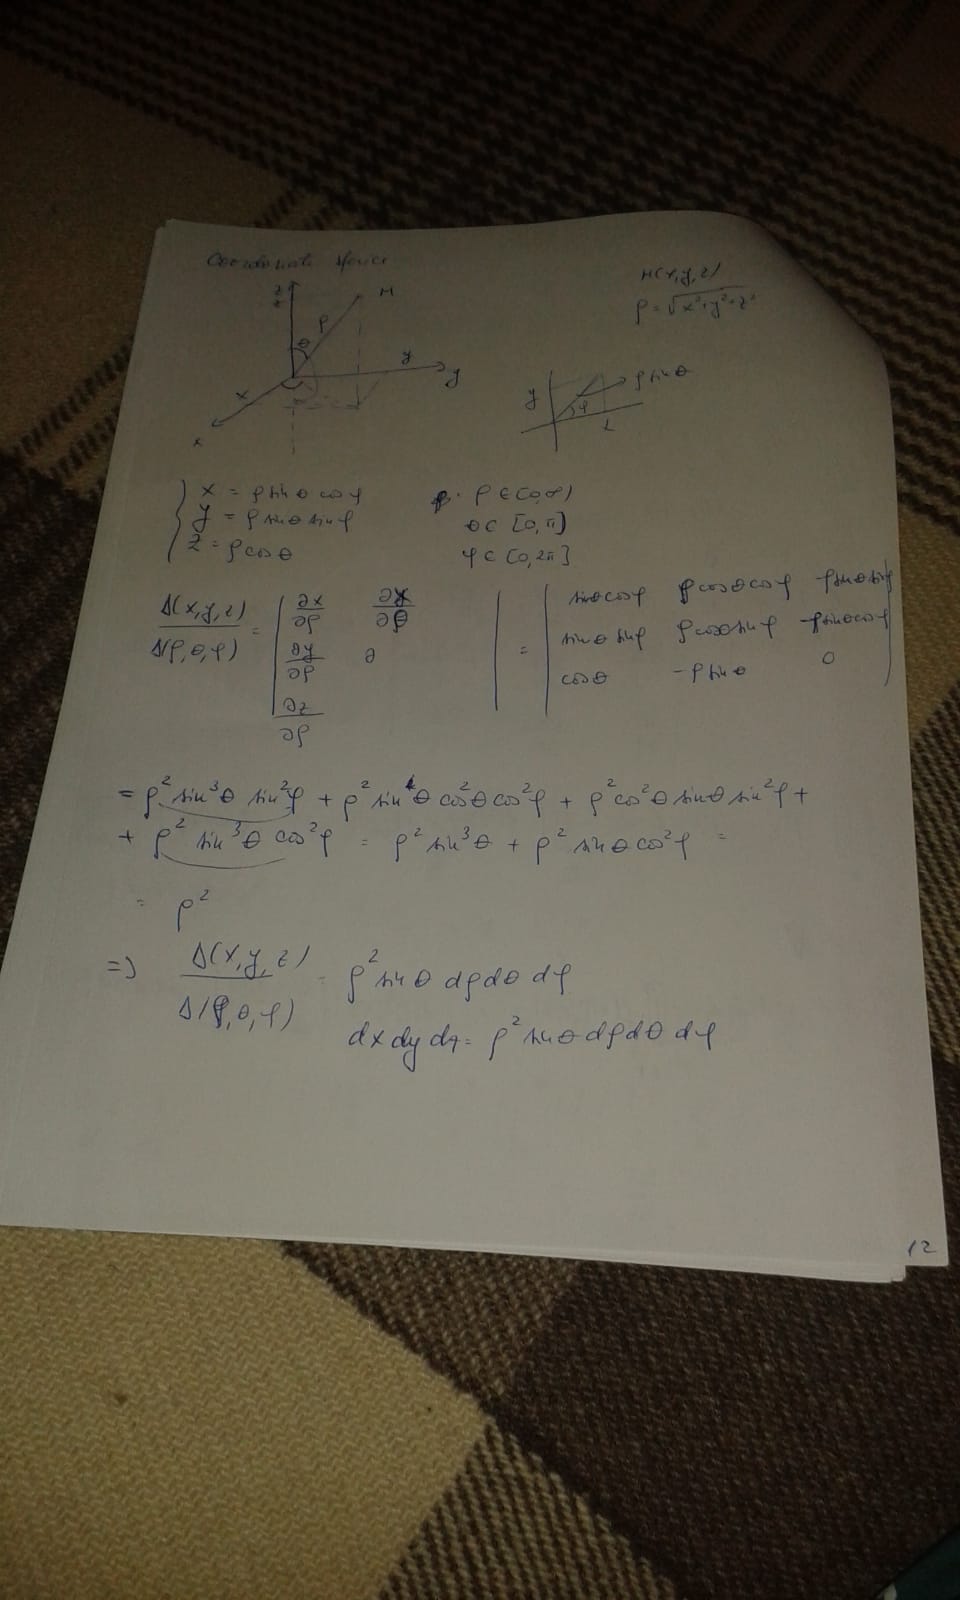 Coordonate sferice
M(x,y,z)
ρ = √x²+y²+z²
z
M
ρ
θ
y
y
x
x
y
φ
ρ sin θ
x
x = ρ sin θ cos φ
y = ρ sin θ sin φ
z = ρ cos θ
ρ ∈ [0,∞)
θ ∈ [0,π]
φ ∈ [0,2π]
Δ(x,y,z) / Δ(ρ,θ,φ) = | ∂x/∂ρ ∂x/∂θ
∂y/∂ρ ∂
∂z/∂ρ | =
| sin θ cos φ ρ cos θ cos φ ρ sin θ sin φ
sin θ sin φ ρ cos θ sin φ -ρ sin θ cos φ
cos θ -ρ sin θ 0 |
= ρ² sin³θ sin²φ + ρ² sin θ cos²θ cos²φ + ρ² cos²θ sin θ sin²φ +
+ ρ² sin³θ cos²φ = ρ² sin³θ + ρ² sin θ cos²φ =
= ρ²
=> Δ(x,y,z) / Δ(ρ,θ,φ) = ρ² sin θ dρ dθ dφ
dx dy dz = ρ² sin θ dρ dθ dφ
12